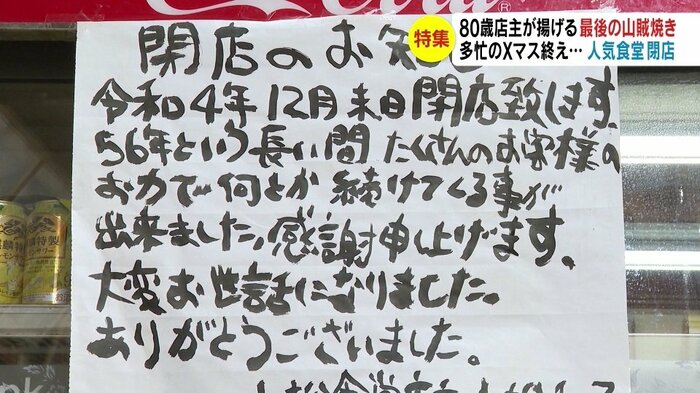 特集
80歳店主が揚げる 最後の山賊焼き
多忙のXマス終え… 人気食堂 閉店
閉店のお知
令和4年12月末日閉店致します。
56年という長い間 たくさんのお客様の
お力で何とか続けてくる事が
出来ました。感謝申し上げます。
大変お世話になりました。
ありがとうございました。
麒麟特製